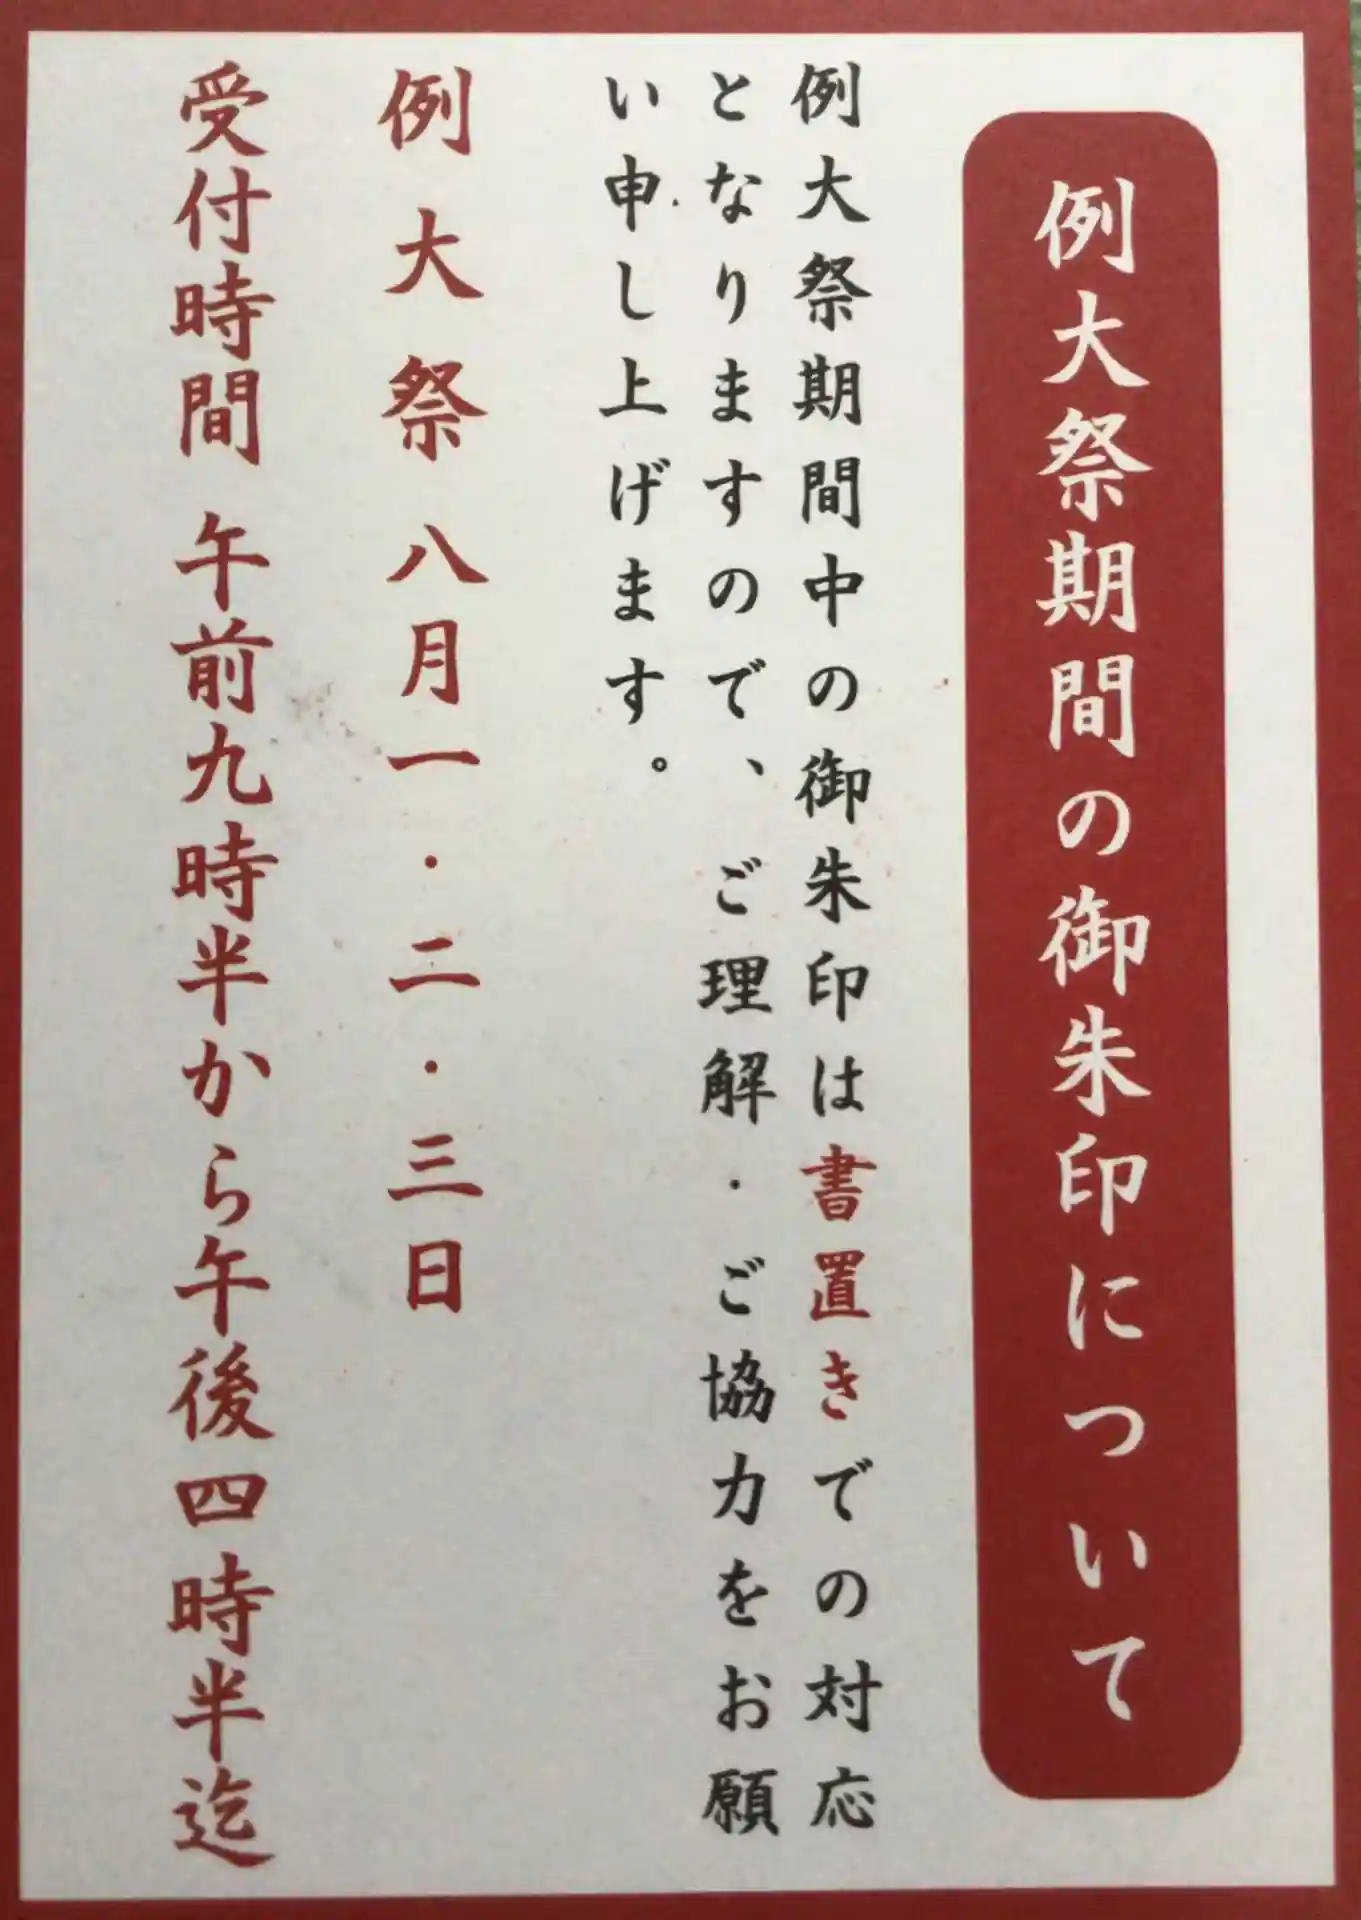 例大祭期間の御朱印について
例大祭期間中の御朱印は書置きでの対応
となりますので、ご理解・ご協力をお願
い申し上げます。
例大祭 八月一・二・三日
受付時間 午前九時半から午後四時半迄